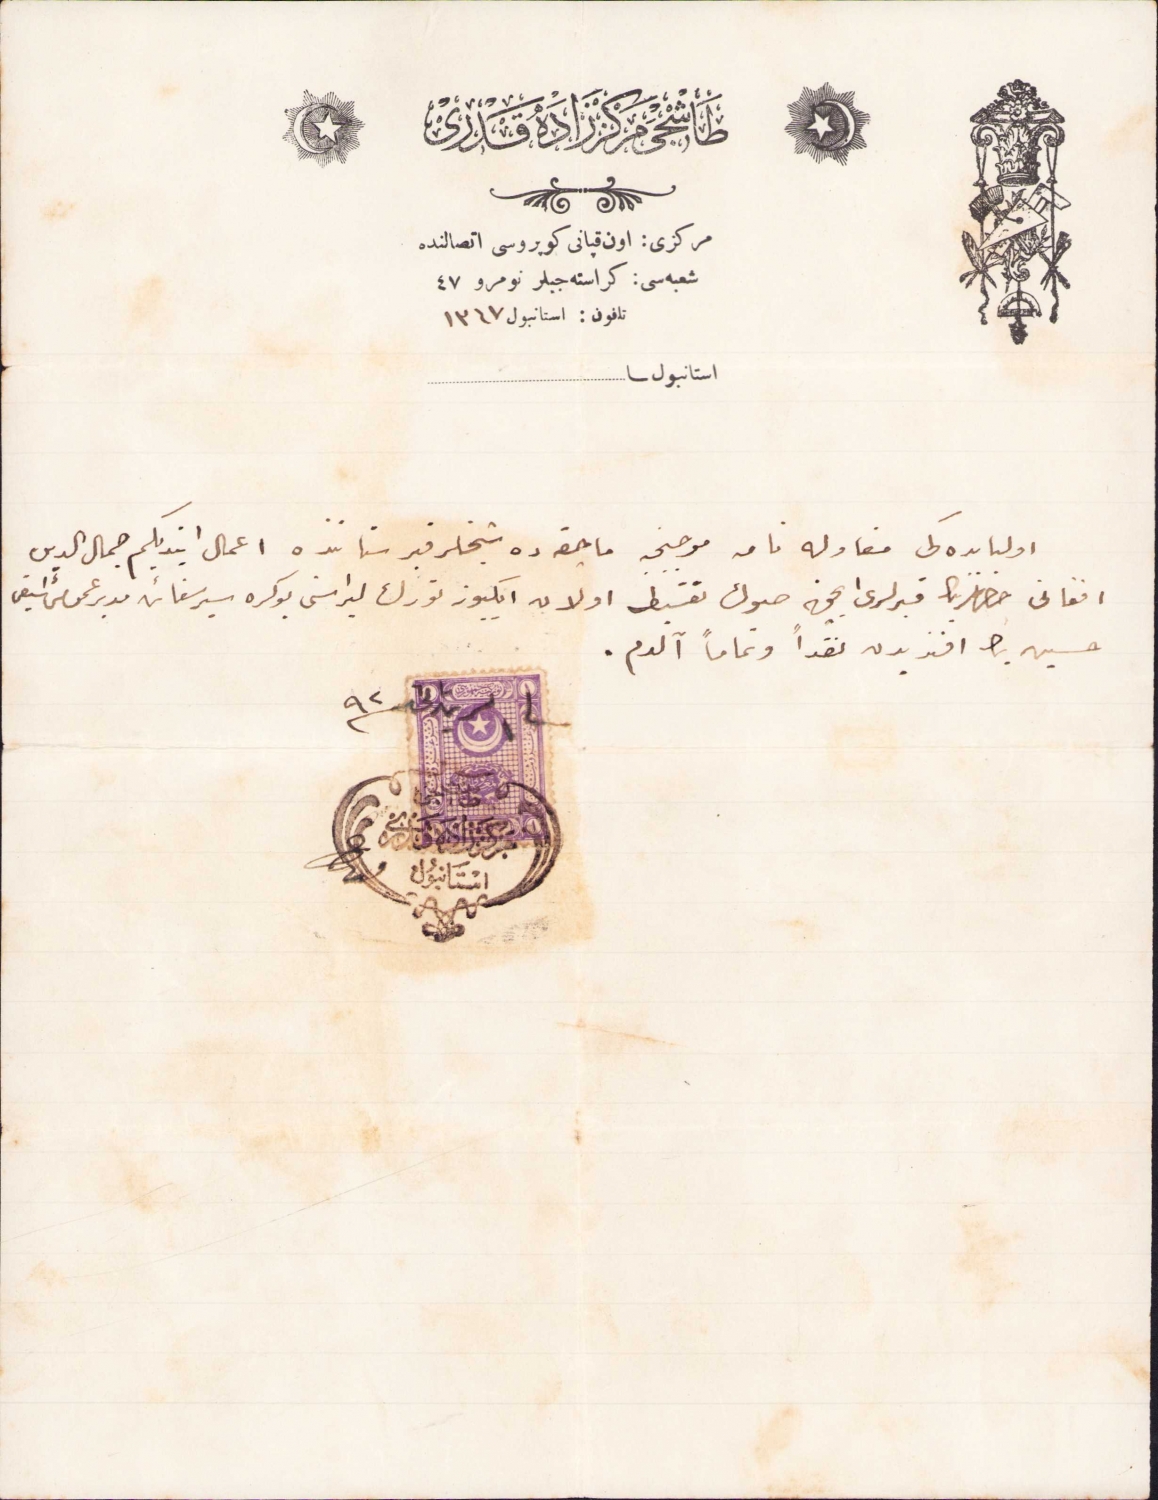 طاشجی مركززاده قدری
مركزی: اون قپانی كوپروسی اتصالنده
شعبه‌سی: كراسته‌جیلر نومرو ٤٧
تلفون: استانبول ١٣٦٧
استانبول
اولبابده‌كی مقاوله نامه موجبنجه ماچقه ده شیخلر قبرستاننده اعمال ایتدیكم جمال الدین
افغانی حضرتلری قبرلری ایچون صوك تقسیط اولان ایكیوز تورك لیراسنی بوكره سیر سفائن مدیر عمومی
حسین افندیدن نقداً وتماماً آلدم.
٩٢
مركززاده قدری
استانبول